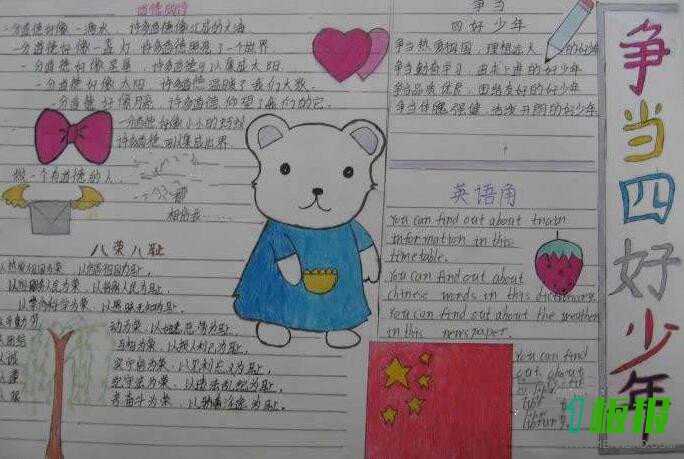 道德的诗
一分道德好像一滴水，许多道德像汇成的大海
一分道德好像一盏灯，许多道德照亮了一个世界
一分道德好像星星，许多道德可以集成太阳
一分道德好像太阳，许多道德温暖了我们大家
一分道德好像月亮，许多道德
一分道德好像小小的
许多道德可以集成世界
做一个有道德的人，
八荣八耻
以热爱祖国为荣，以危害祖国为耻，
以服务人民为荣，以背离人民为耻，
以崇尚科学为荣，以愚昧无知为耻，
动为荣，以好逸恶劳为耻，
互助为荣，以损人利己为耻，
实守信为荣，以见利忘义为耻，
纪守法为荣，以违法乱纪为耻，
苦奋斗为荣，以骄奢淫逸为耻。
争当
四好少年
争当热爱祖国，理想远大的好少年
争当勤奋学习，追求上进的好少年
争当品质优良，团结友好的好少年
争当体魄强健，活泼开朗的好少年
英语角
You can find out about train
information in this
timetable.
You can find out about
chinese words in this dictionary.
You can find out about the weather
in this newspaper.
You can find
out about
争当四好少年
1板报